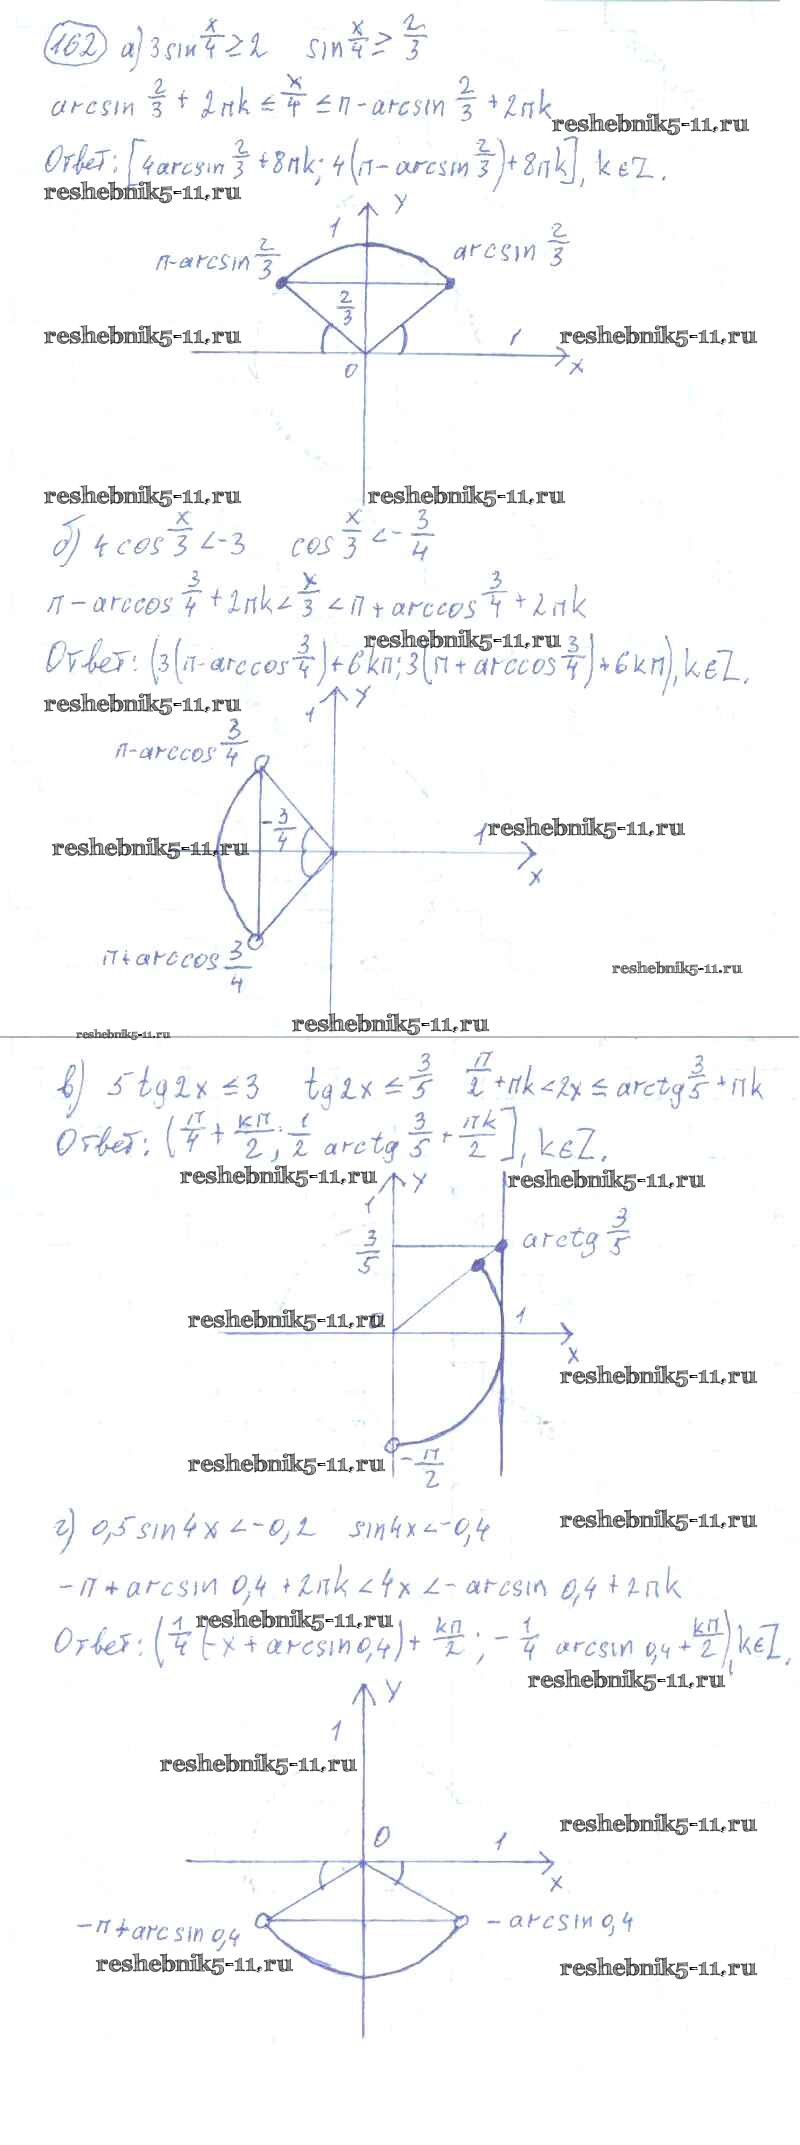 162 а) 3sin x/4 ≥ 2 sin x/4 ≥ 2/3
arcsin 2/3 + 2πk ≤ x/4 ≤ π - arcsin 2/3 + 2πk
reshebnik5-11.ru
Ответ: [4arcsin 2/3 + 8πk; 4(π - arcsin 2/3) + 8πk], k∈Z.
reshebnik5-11.ru
1 y
π-arcsin 2/3 arcsin 2/3
2/3
reshebnik5-11.ru 1 reshebnik5-11.ru
0 x
reshebnik5-11.ru reshebnik5-11.ru
б) 4cos x/3 < -3 cos x/3 < -3/4
π - arccos 3/4 + 2πk < x/3 < π + arccos 3/4 + 2πk
reshebnik5-11.ru
Ответ: (3(π-arccos 3/4)+6kπ; 3(π+arccos 3/4)+6kπ), k∈Z.
reshebnik5-11.ru 1 y
π-arccos 3/4
-3/4 1 reshebnik5-11.ru
reshebnik5-11.ru
x
π+arccos 3/4
reshebnik5-11.ru
reshebnik5-11.ru
reshebnik5-11.ru
в) 5tg2x ≤ 3 tg2x ≤ 3/5 π/2 + πk < 2x ≤ arctg 3/5 + πk
Ответ: (π/4 + kπ/2; 1/2 arctg 3/5 + πk/2], k∈Z.
reshebnik5-11.ru y reshebnik5-11.ru
1
3/5 arctg 3/5
reshebnik5-11.ru 1
x
reshebnik5-11.ru
reshebnik5-11.ru -π/2
г) 0,5sin4x < -0,2 sin4x < -0,4
reshebnik5-11.ru
-π + arcsin 0,4 + 2πk < 4x < -arcsin 0,4 + 2πk
reshebnik5-11.ru
Ответ: (1/4(-x + arcsin0,4) + kπ/2; -1/4 arcsin 0,4 + kπ/2), k∈Z.
reshebnik5-11.ru
y
1
reshebnik5-11.ru
reshebnik5-11.ru
0 1
x
-π+arcsin 0,4 -arcsin 0,4
reshebnik5-11.ru reshebnik5-11.ru